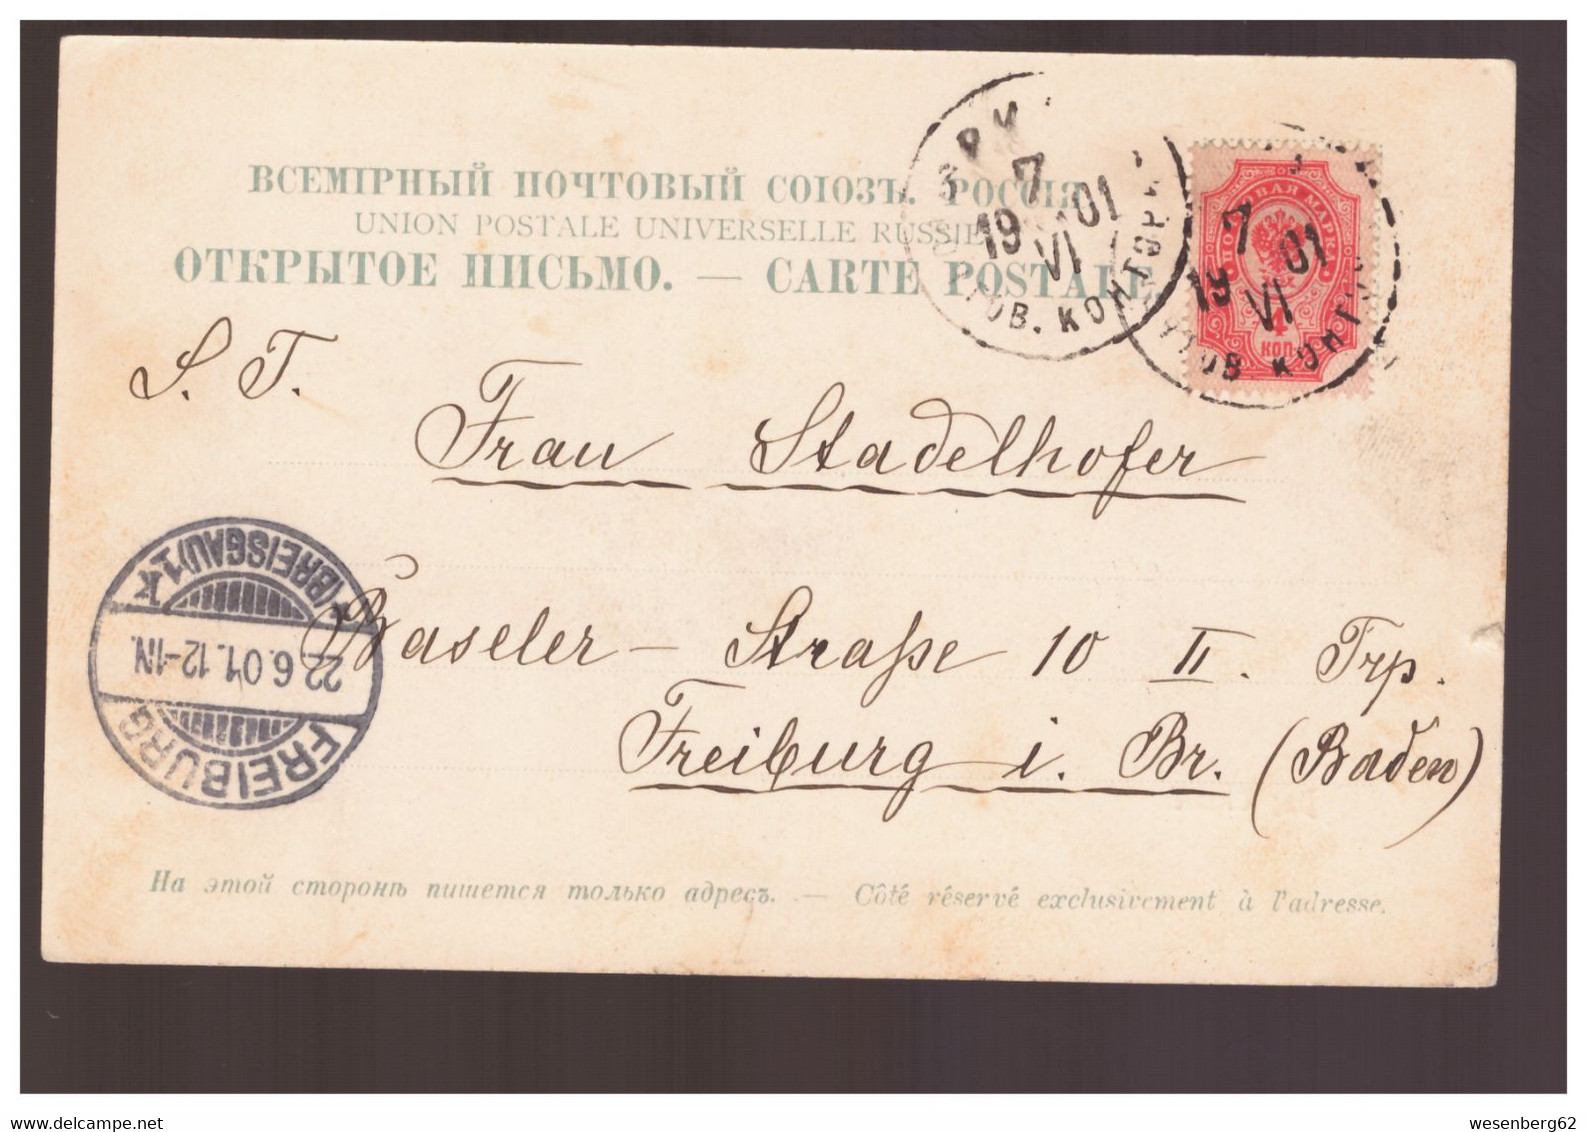 ВСЕМІРНЫЙ ПОЧТОВЫЙ СОЮЗЪ. РОССІЯ
UNION POSTALE UNIVERSELLE RUSSIE
ОТКРЫТОЕ ПИСЬМО. — CARTE POSTALE.
7
19 01
VI
ПОЧТОВ. КОНТОРА
ПОЧТОВАЯ МАРКА
4
КОП.
7
19 01
VI
ПОЧТОВ. КОНТОРА
S. T.
Frau Stadelhofer
Baseler - Straße 10 II. Trp.
Freiburg i. Br. (Baden)
FREIBURG
22.6.01.12-1N.
*(BREISGAU)1k
На этой сторонѣ пишется только адресъ. — Côté réservé exclusivement à l'adresse.
wesenberg62